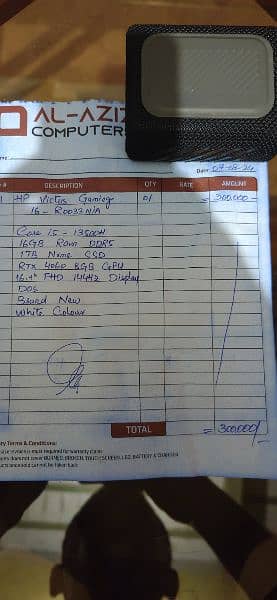 AL-AZIZ
COMPUTERS
Date: 07-08-24
#
DESCRIPTION
QTY
RATE
AMOUNT
1 HP Victus Gaming 01 = 300,000 -
16 - R0033N/A
Core i5 - 13500H
16GB Ram DDR5
1TB Nvme SSD
RTX 4060 8GB GPU
16.1" FHD 144Hz Display
DOS
Brand New
White Colour
TOTAL = 300,000/-
Terms & Conditions:
must required for warranty claim
does not cover BURNED, BROKEN,
BATTERY & CHARGER
cannot be taken back